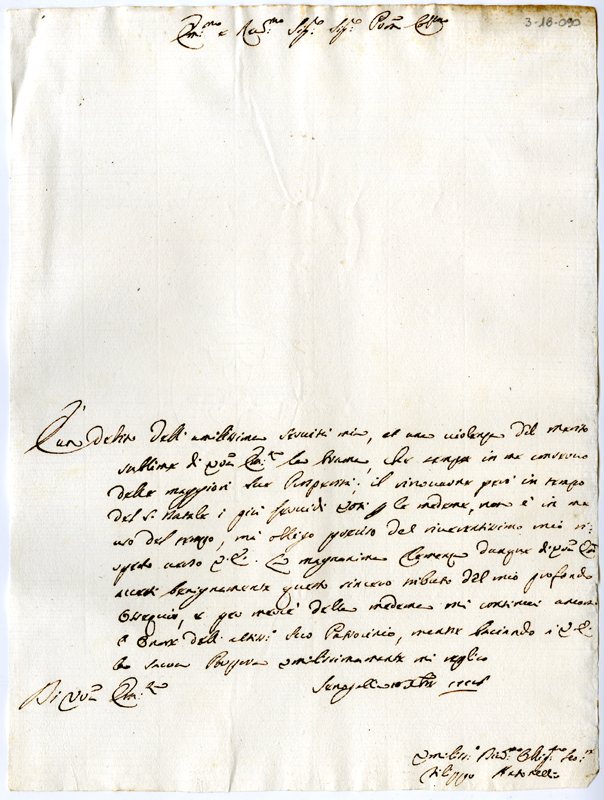 3-18-090
Em.mo e Rev.mo Sig.r Sig.r Pron Col.mo
È un debito dell'umilissima servitù mia, et una violenza del merito
sublime di Vos.a Em.za la brama, che sempre in me conservo
delle maggiori sue Prosperità; il rinovare però in tempo
del S. Natale i più fervidi Voti p le medeme, non è in me
uso del tempo, mà obligo preciso del riverentissimo mio ri-
spetto verso V.E. La magnanima Clemenza dunque di Vos.a Em.za
accetti benignamente questo sincero tributo del mio profondo
Ossequio, e per mezzo della medema mi continui ancora
l'Onore dell'altiss.o suo Patrocinio, mentre baciando à V.E.
la Sacra Porpora umilissimamente mi
Di Vos.a Em.za
Senogallia Xbre
Umiliss.o Div.mo Oblig.mo Ser.re
Filippo Antonelli